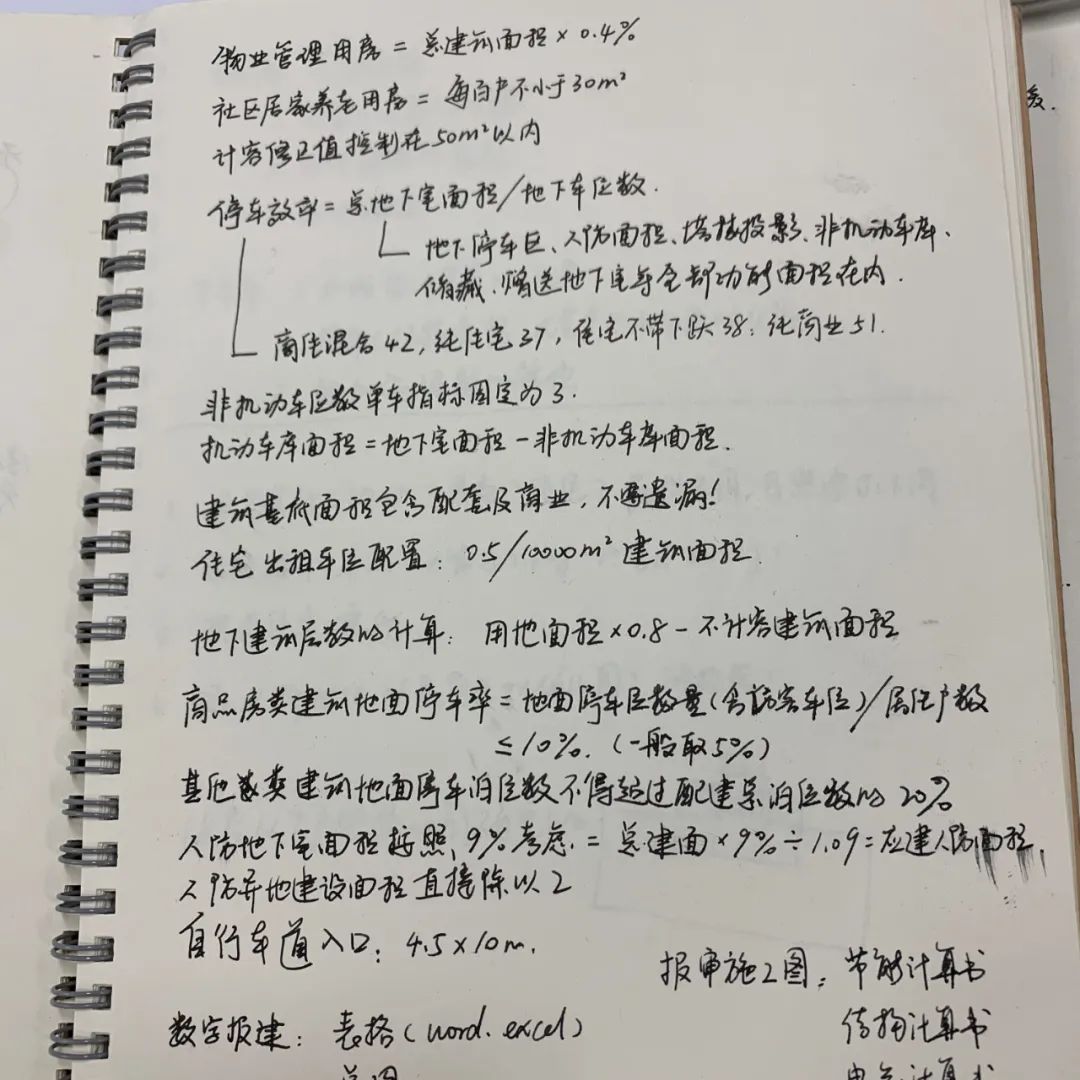 物业管理用房 = 总建筑面积 × 0.4%
社区居家养老用房 = 每百户不小于30m²
计容修正值控制在50m²以内
停车效率 = 总地下室面积/地下车位数.
地下停车区、人防面积、塔楼投影、非机动车库、
储藏、赠送地下室等全部功能面积在内.
商住混合42, 纯住宅37, 住宅不带下跃38; 纯商业51.
非机动车位数单车指标固定为3.
机动车库面积 = 地下室面积 - 非机动车库面积.
建筑基底面积包含配套及商业, 不要遗漏!
住宅出租车位配置: 0.5/10000m² 建筑面积.
地下建筑层数的计算: 用地面积×0.8 - 不计容建筑面积
商品房类建筑地面停车率 = 地面停车位数量(含访客车位)/居住户数
≤10%. (一般取5%)
其他类建筑地面停车泊位数不得超过配建总泊位数的20%
人防地下室面积按照9%考虑. = 总建面×9%÷1.09 = 应建人防面积.
人防异地建设面积直接除以2
自行车道入口: 4.5×10m.
报审施工图: 节能计算书
数字报建: 表格(word.excel)
结构计算书
总图
电气计算书